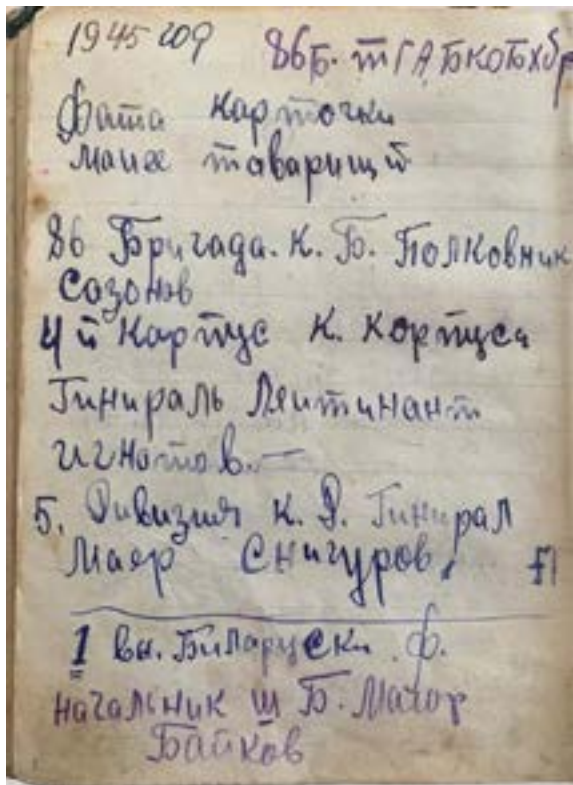 1945 год 86 Б. т ГАБКОБхбр
Фата карточки
маих таварищй
86 Бригада. К. Б. Полковник
Созонов
4й Карпус К. Корпуса
Гинираль Леитинант
Игнотов.—
5. Дивизия К. Д. Гинирал
Маер Снигуров.
1 вн. Биларуски Ф.
начальник ш Б. Маиор
Байков